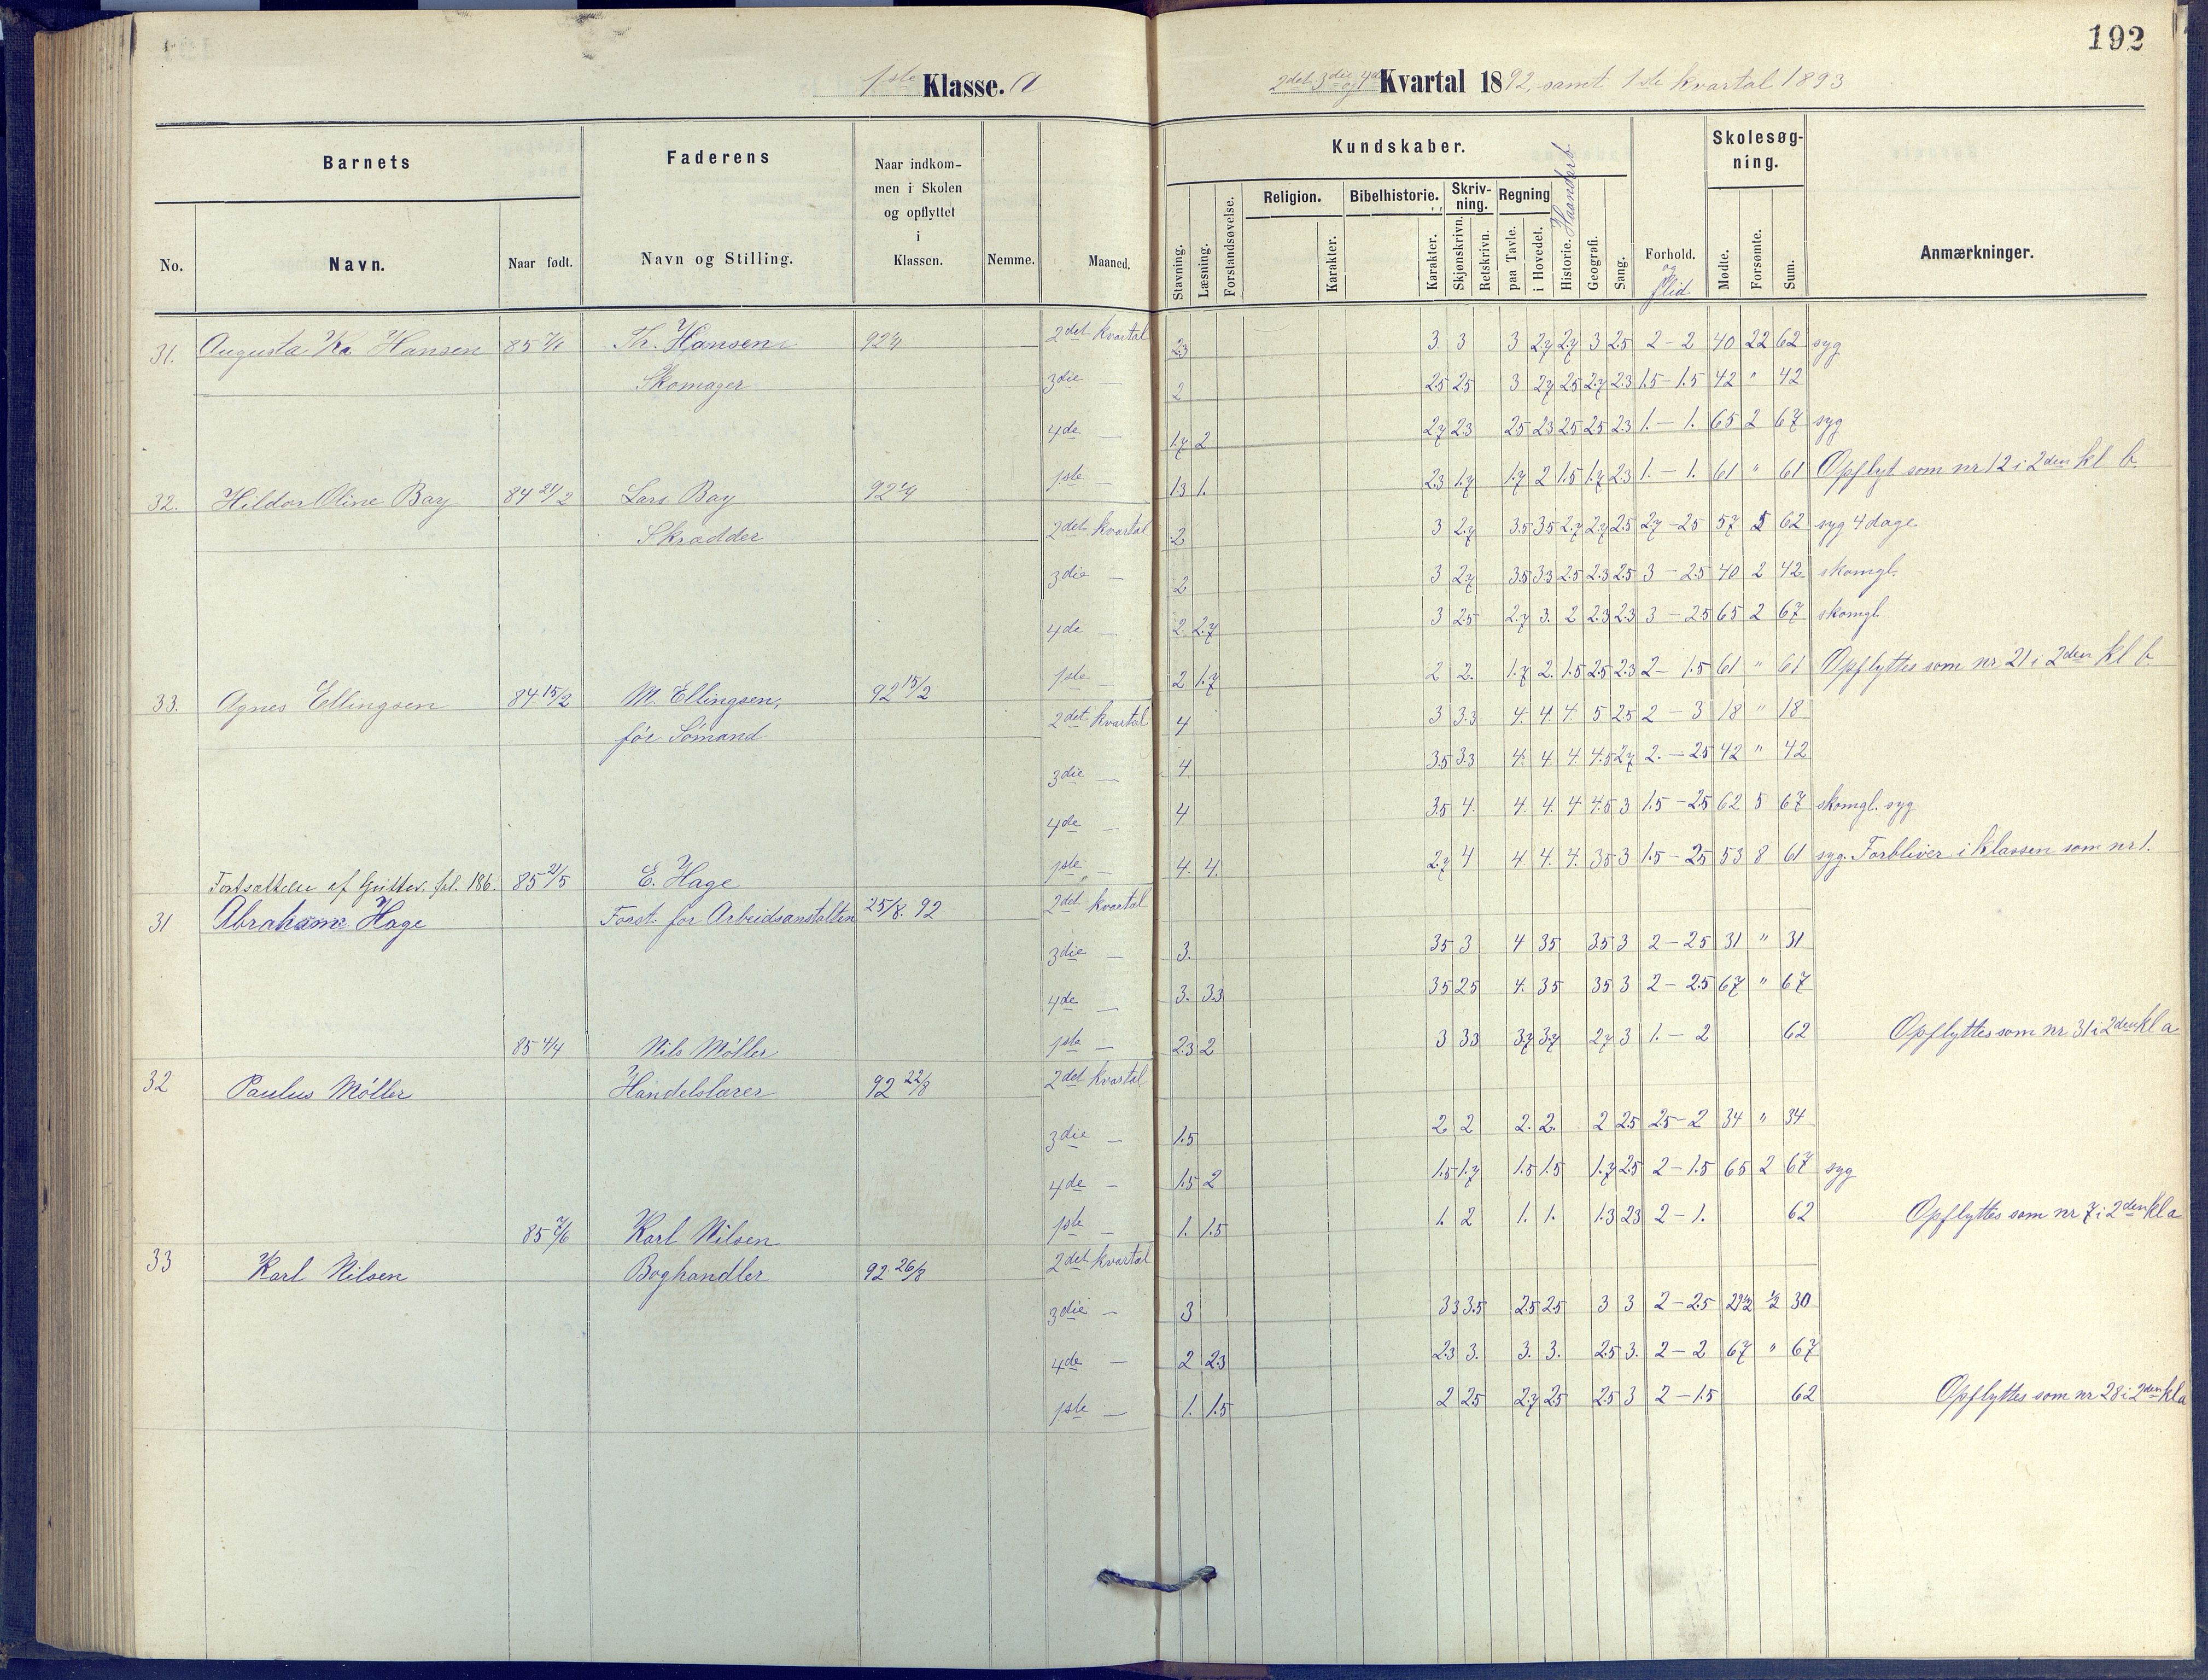 192
1ste Klasse. a
2det 3die og 4de Kvartal 1892, samt 1ste kvartal 1893
Barnets
Faderens
Naar indkom-
men i Skolen
og opflyttet
i
Klassen.
Kundskaber.
Skolesøg-
ning.
Religion. Bibelhistorie. Skriv-
ning. Regning
Haandarb
No. Navn. Naar født. Navn og Stilling. Nemme. Maaned. Stavning. Læsning. Forstandsøvelse. Karakter. Karakter. Skjønskrivn. Retskrivn. paa Tavle. i Hovedet. Historie. Geografi. Sang. Forhold. Mødte. Forsømte. Sum. Anmærkninger.
og
flid
31. Augusta Ka. Hansen 85 Th. Hansen 92 2det kvartal 2.3 3 3 3 2.7 2.7 3 2.5 2-2 40 22 62 syg
Skomager 3die 2 2.5 2.5 3 2.7 2.5 2.7 2.3 1.5-1.5 42 " 42
4de — 1.7 2 2.7 2.3 2.5 2.3 2.5 2.5 2.3 1.-1. 65 2 67 syg
1ste — 1.3 1. 2.3 1.7 1.7 2 1.5 1.7 2.3 1.-1. 61 " 61 Opflyt som nr 12 i 2den kl b
32. Hildor Oline Bay 84 21/2 Lars Bay 92
Skrædder 2det kvartal 2 3 2.7 3.5 3.5 2.7 2.7 2.5 2.7-2.5 57 5 62 syg 4 dage
3die — 2 3 2.7 3.5 3.3 2.5 2.3 2.5 3-2.5 40 2 42 skomgl.
4de — 2 2.7 3 2.5 2.7 3. 2 2.3 2.3 3-2.5 65 2 67 skomgl
1ste — 2 1.7 2 2. 1.7 2. 1.5 2.5 2.3 2-1.5 61 " 61 Opflyttes som nr 21 i 2den kl b
33. Agnes Ellingsen 84 15/2 M. Ellingsen, 92 15/2
før Sömand 2det kvartal 4 3 3.3 4. 4. 4. 5 2.5 2-3 18 " 18
3die — 4 3.5 3.3 4. 4. 4. 4.5 2.7 2.-2.5 42 " 42
4de — 4 3.5 4. 4. 4. 4 4.5 3 1.5-2.5 62 5 67 skomgl. syg
1ste — 4. 4. 2.7 4 4 4. 4. 3.5 3 1.5-2.5 53 8 61 syg. Forbliver i klassen som nr 1.
Fortsættelse af Gutter. fol. 186. 85 21/5 E. Hage
31 Abraham Hage Forst. for Arbeidsanstalten 25/8. 92 2det kvartal
3die — 3. 3.5 3 4 3.5 3.5 3 2-2.5 31 " 31
4de — 3. 3.3 3.5 2.5 4. 3.5 3.5 3 2-2.5 67 " 67
85 4/4 Nils Möller 1ste — 2.3 2 3 3.3 3.7 3.7 2.7 3 1.-2 62 Opflyttes som nr 31 i 2den kl a
32 Paulus Möller Handelslærer 92 22/8 2det kvartal
3die — 1.5 2 2 2. 2. 2 2.5 2.5-2 34 " 34
4de — 1.5 2 1.5 1.7 1.5 1.5 1.7 2.5 2-1.5 65 2 67 syg
85 Karl Nilsen 1ste — 1. 1.5 1. 2 1. 1. 1.3 2.3 2-1. 62 Opflyttes som nr 7 i 2den kl a
33 Karl Nilsen Boghandler 92 26/8 2det kvartal
3die — 3 3.3 3.5 2.5 2.5 3 3 2-2.5 29½ ½ 30
4de — 2 2.3 2.3 3. 3. 3. 2.5 3. 2-2 67 " 67
1ste — 1. 1.5 2 2.5 2.7 2.5 2.5 3 2-1.5 62 Opflyttes som nr 28 i 2den kl a